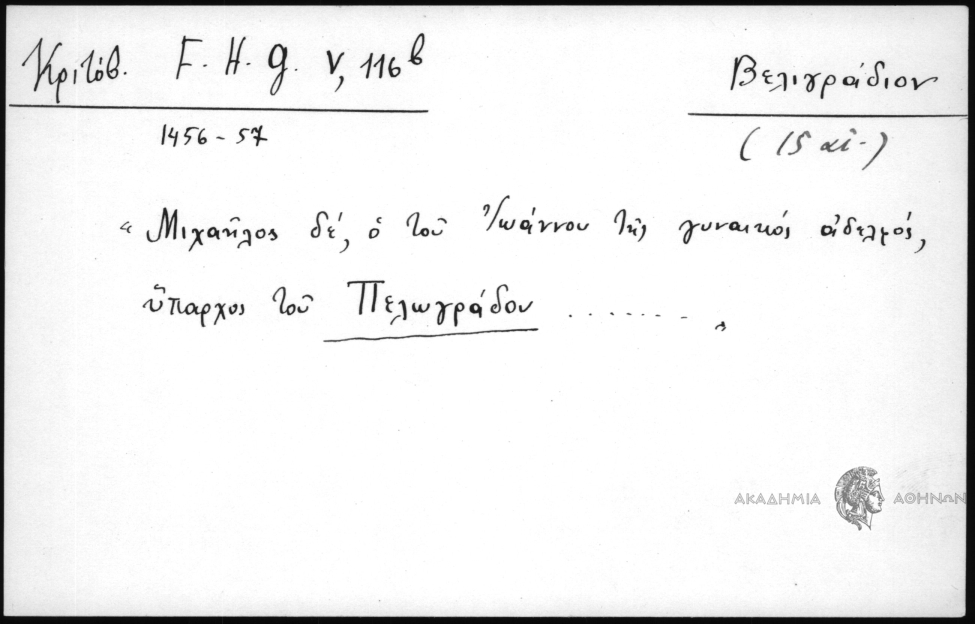 Κριτόβ. F. H. g. V, 116β
Βελιγράδιον
1456-57
(15 αἰ.)
“Μιχαῆλος δέ, ὁ τοῦ Ἰωάννου τῆς γυναικός ἀδελφός,
ὕπαρχος τοῦ Πελωγράδου ........ „
ΑΚΑΔΗΜΙΑ ΑΘΗΝΩΝ